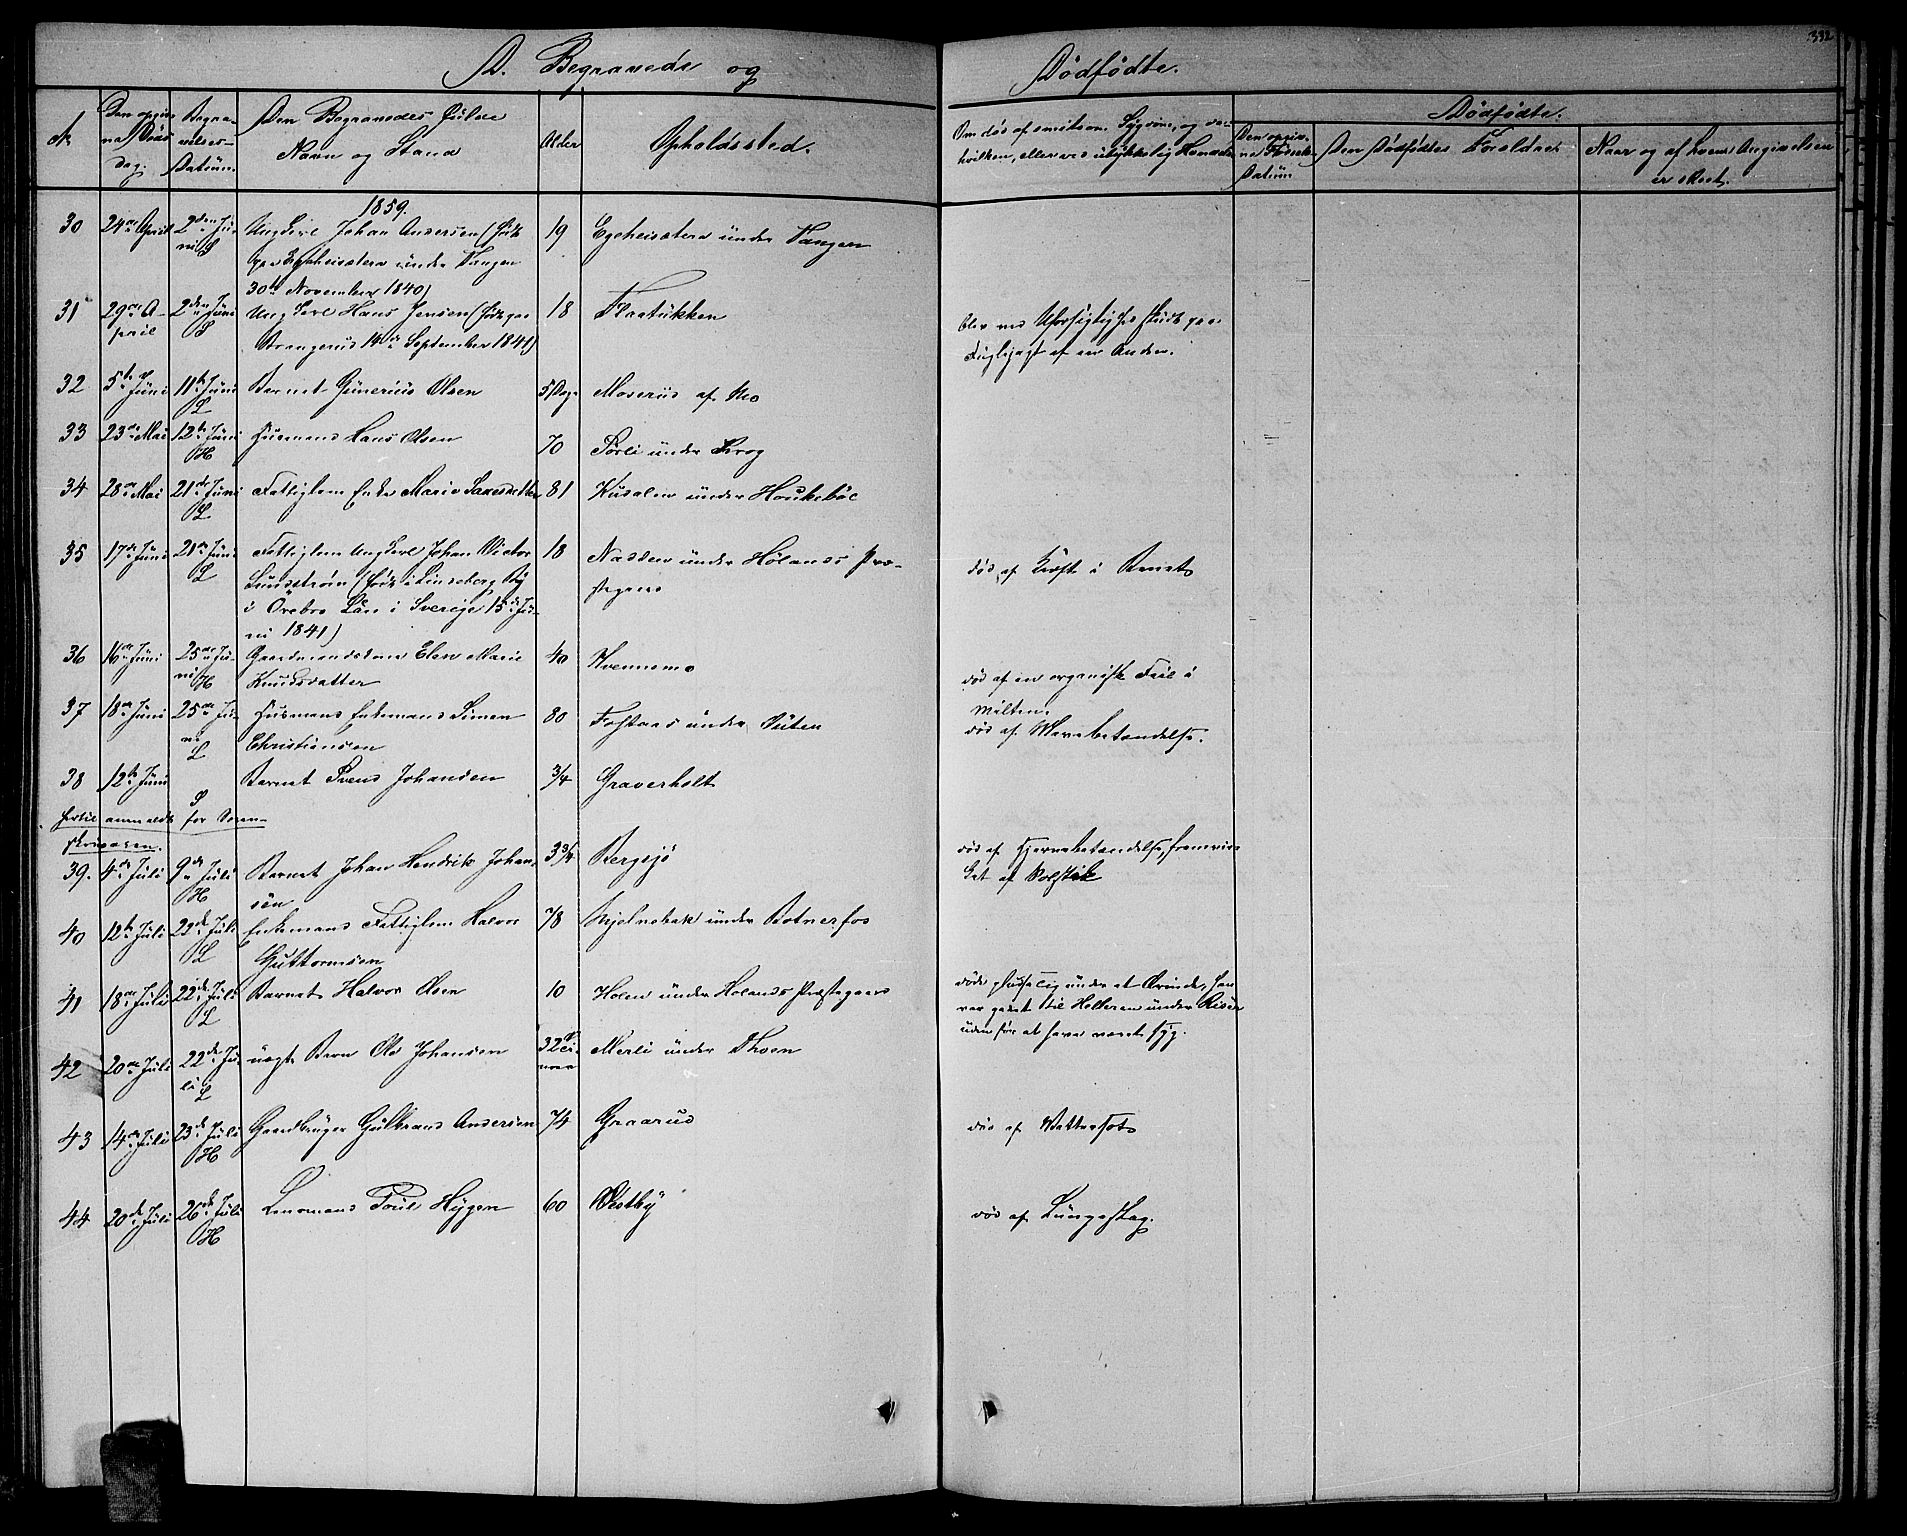 332
D. Begravede og Dødfødte.
No
Den opgivne Døds Dag.
Begravelses-Datum.
Den Begravedes fulde Navn og Stand
Alder
Opholdssted.
Om død af smitsom Sygdom, og da hvilken, eller ved ulykkelig Hændelse
Dødfødte.
Den opgivne Fødsels Datum
Den Dødfødtes Forældre
Naar og af hvem Angivelsen er skeet.
1859.
30 24de April 2den Juni L Ungkarl Johan Andersen (født paa Egeheisætern under Vangen 30te November 1840) 19 Egeheisætern under Vangen
31 29de April 2den Juni L Ungkarl Hans Jensen (født paa Strangerud 14de September 1841) 18 Flaatukken
blev ved Uforsigtighed skudt paa Fuglejagt af en Anden.
32 5te Juni 11te Juni L Barnet Gunerius Olsen 5 Dage Moserud af Mo
33 23de Mai 12te Juni H Husmand Hans Olsen 70 Sørli under Krog
34 28de Mai 21de Juni L Fattiglem Enke Marie Larsdatter 81 Kusalen under Haukebøl
35 17de Juni 21de Juni L Fattiglem Ungkarl Johan Victor Lundstrøm (født i Lindesberg By i Örebro Län i Sverige 15de Juni 1841) 18 Nadden under Hølands Præstegaard
død af Kræft i Benet
36 16de Juni 25de Juni H Gaardmandskone Elen Marie Knudsdatter 40 Kvennemo
død af en organisk Feil i Milten.
37 18de Juni 25de Juni L Husmand Enkemand Simen Christiansen 80 Fosstad under Duten
død af Mavebetændelse.
38 12te Juni S Barnet Svend Johansen 3/4 Graverholt
Hertil anmeldt for Sorenskriveren.
39. 4de Juli 9de Juli H Barnet Johan Hendrik Johansen 3 3/4 Bergsjø
død af Hjernebetændelse, fremvirket af Solstik
40 12te Juli 22de Juli L Enkemand Fattiglem Halvor Guttormsen 78 Mjelnebak under Botnerfos
41 18de Juli 22de Juli L Barnet Halvor Olsen 10 Holen under Hølands Præstegaard
døde pludselig under et Ærinde, han var gaaet til Holteren under Riser uden før at have været syg.
42 20de Juli 22de Juli L uægte Barn Ole Johansen 32 Merli under Thoen
43 14de Juli 23de Juli H Gaardbruger Gulbrand Andersen 74 Graarud
død af Vattersot
44 20de Juli 26de Juli H Lensmand Poul Hygen 60 Østby
død af Lungeslag.